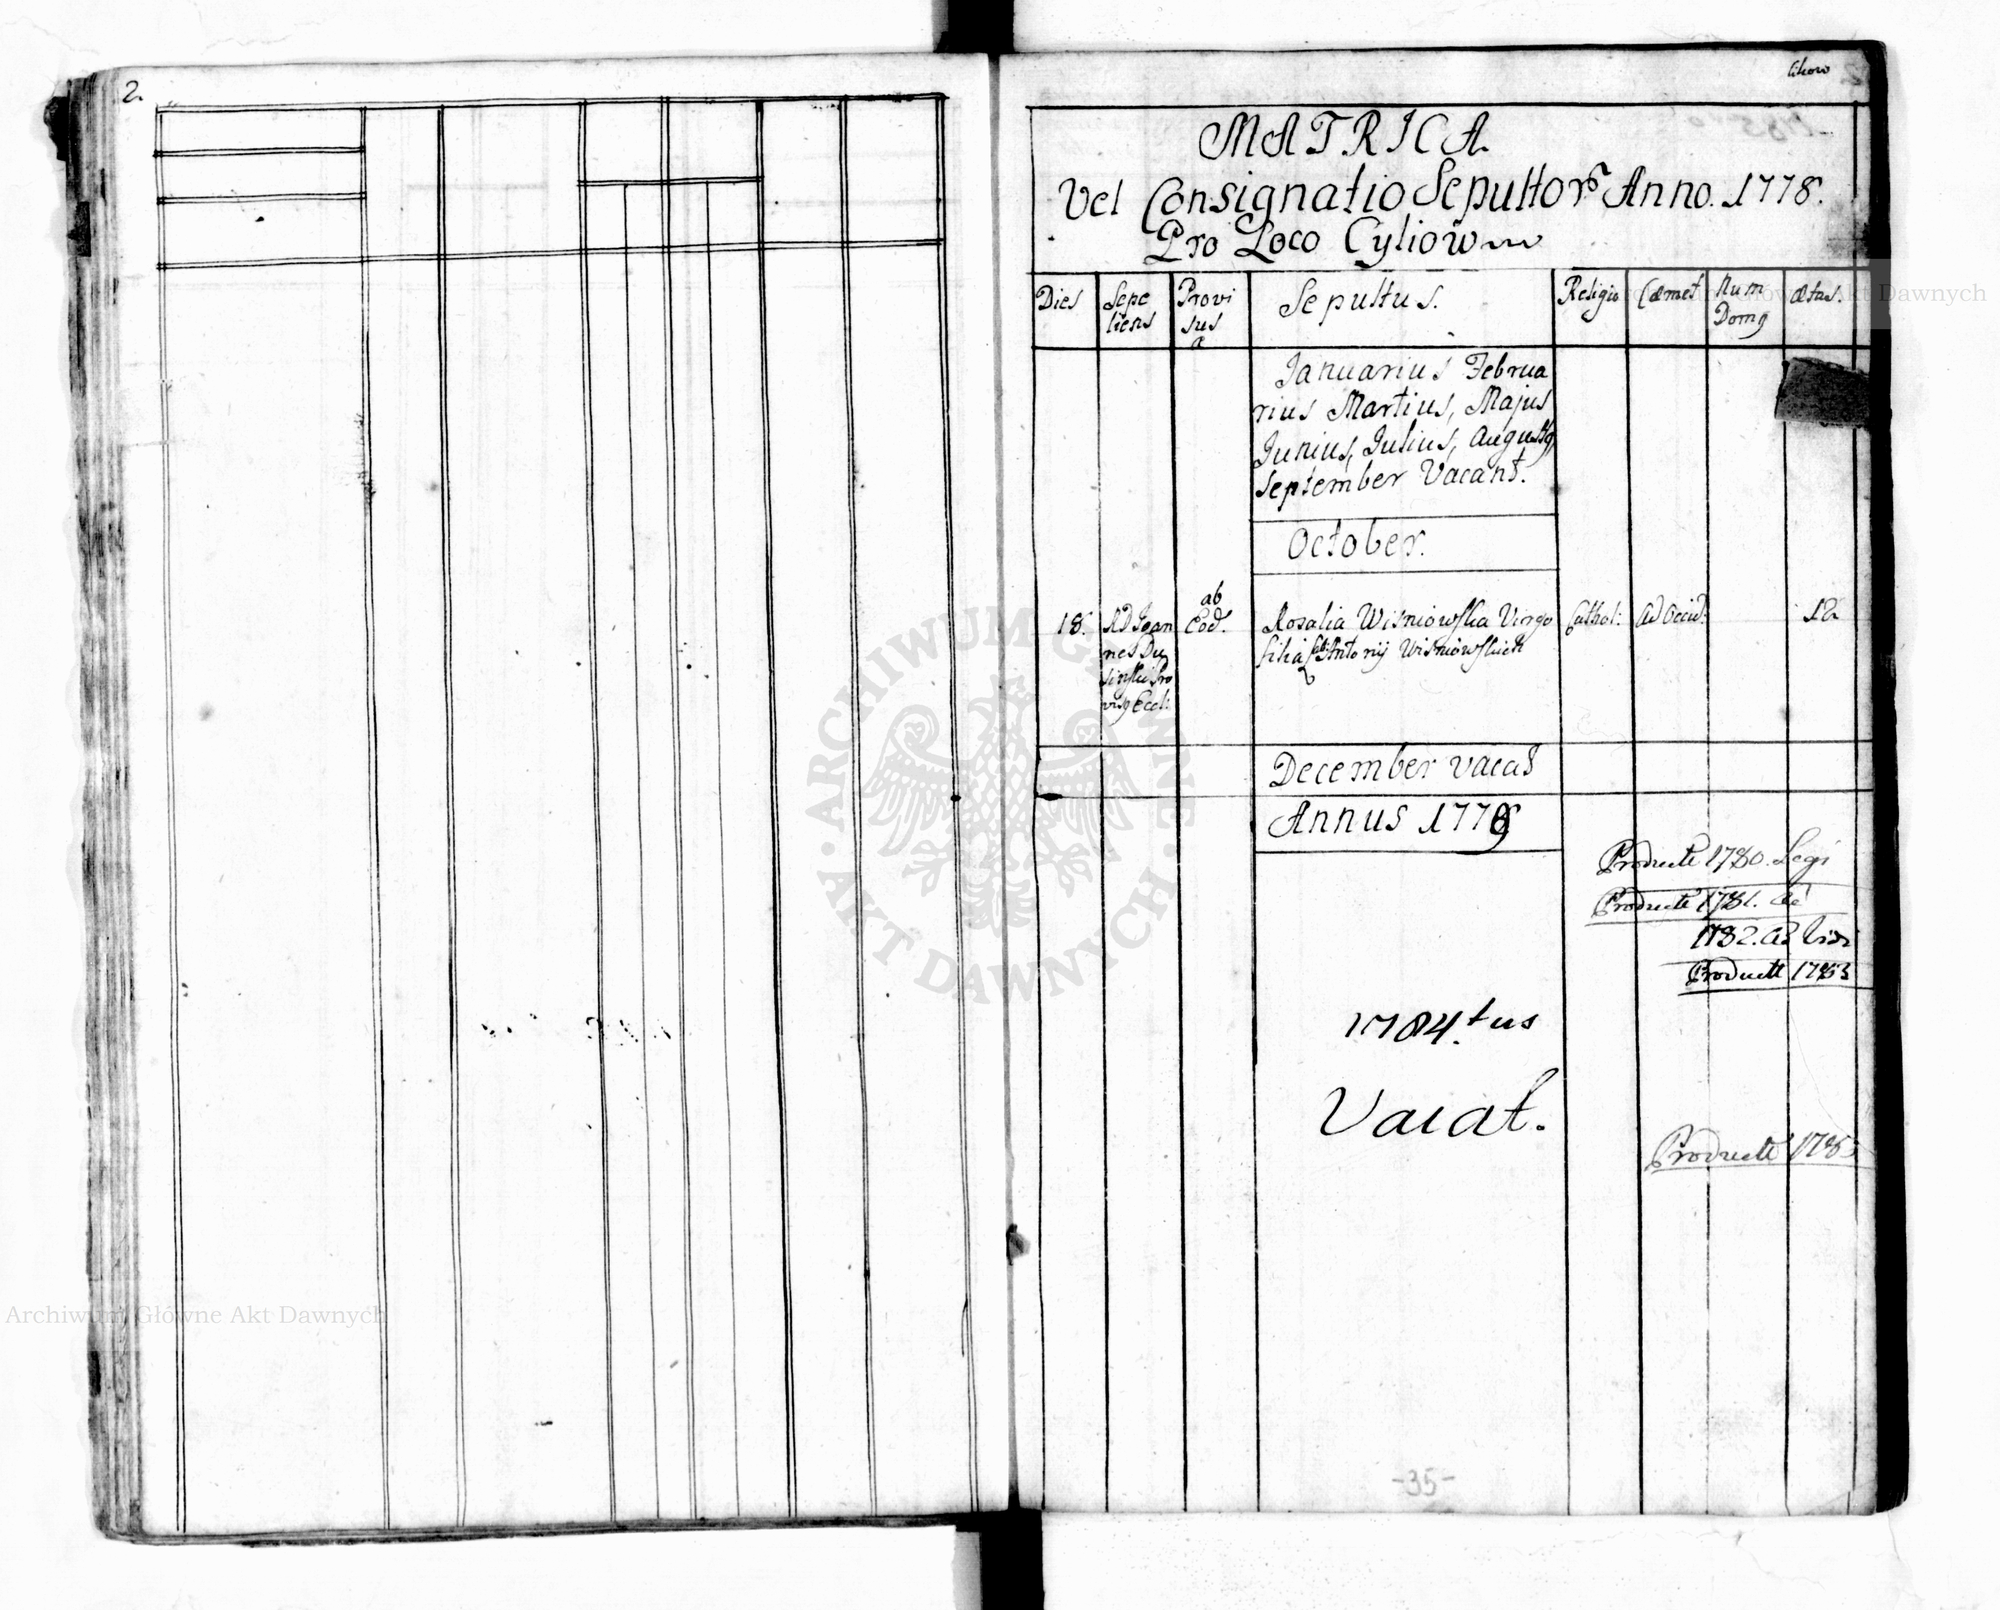 2.
Cikow
MATRICA
Vel Consignatio Sepultor Anno. 1778.
Pro Loco Cyliow
Dies
Sepe
liens
Provi
sus
a
Sepultus.
Religio
Cœmet
Num
Domq
Ætas.
Januarius Februa
rius Martius, Majus
Junius, Julius, Augustq,
September Vacant.
October.
18.
RD Joan
nes Du
ab
Eod.
Rosalia Wisniowska Virgo
filia Antonij Wisniowskich
Cathol:
Ad Occid:
12
December vacat
Annus 1779
Producte 1780. Legi
Producte 1781.
1782.
Producte 1783
1784.tus
Vacat.
Producte 1785
-35-
ARCHIWUM GŁÓWNE
AKT DAWNYCH
Archiwum Główne Akt Dawnych
Archiwum Główne Akt Dawnych